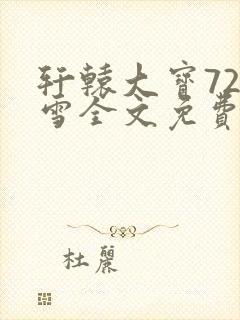 轩辕大寳72
雪全文免費
杜麗